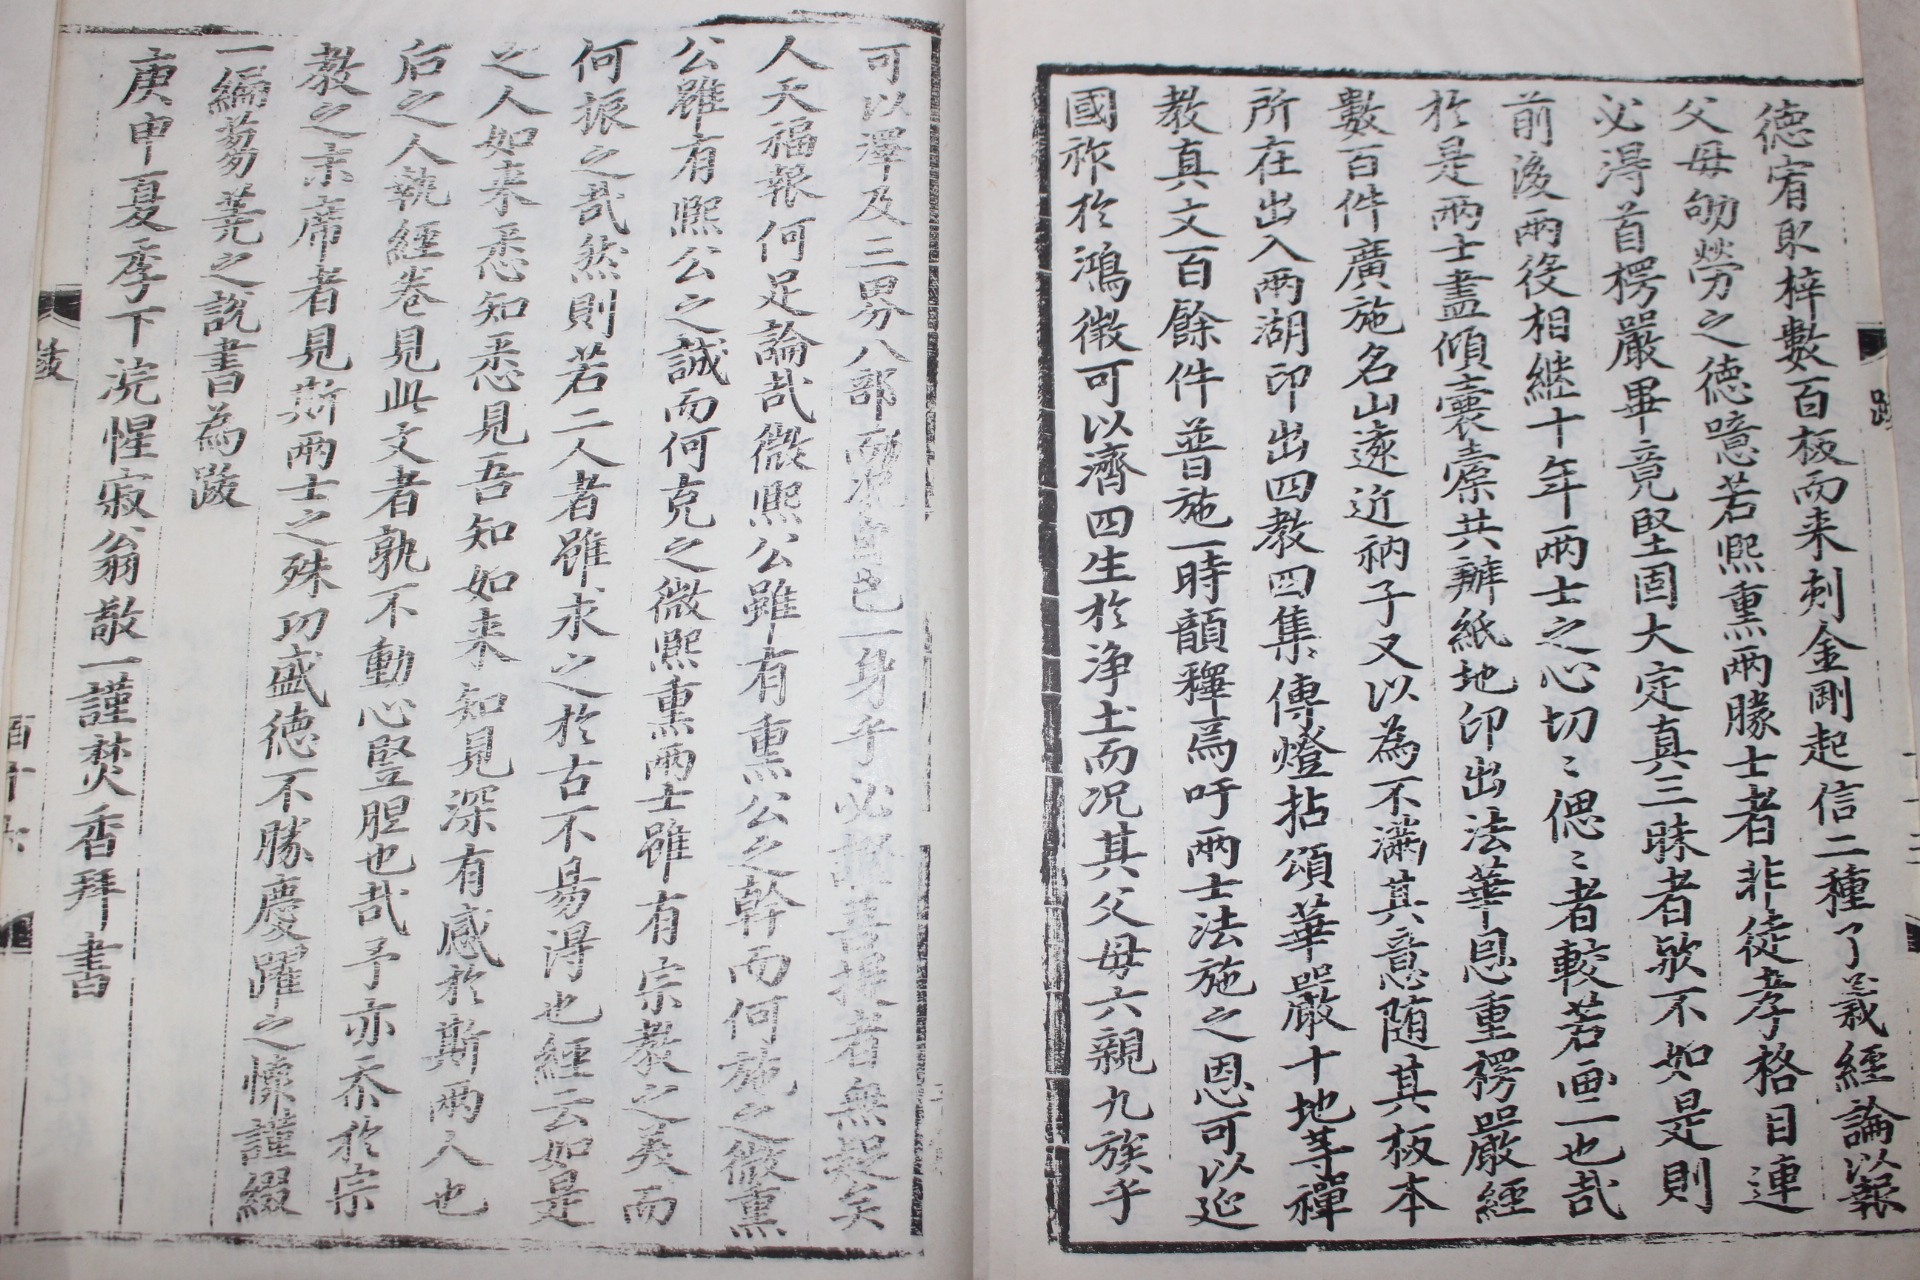 德宥取梓數百板而来刺金剛起信二種了義經論以報
父母劬勞之德噫若熙熏兩勝士者非徒孝格目連
必淂首楞嚴畢竟堅固大定真三昧者欤不如是則
前後兩役相継十年兩士之心切〻偲〻者較若画一也哉
扵是兩士盡傾囊橐共辦紙地印出法華恩重楞嚴經
數百件廣施名山遠近衲子又以為不滿其意随其板本
所在出入兩湖印出四教四集傳燈拈頌華嚴十地等禪
教真文百餘件普施一時韻釋焉吁兩士法施之恩可以延
國祚扵鴻徵可以濟四生扵浄土而况其父母六親九族乎
跋
可以澤及三界八部而况自己一身乎必證菩提者無疑矣
人天福報何足論哉微熙公雖有熏公之幹而何施之微熏
公雖有熙公之誠而何克之微熙熏兩士雖有宗教之美而
何振之哉然則若二人者雖求之扵古不易淂也經云如是
之人如来悉知悉見吾知如来知見深有感扵斯兩人也
后之人執經卷見此文者孰不動心竪胆也哉予亦忝扵宗
教之末席者見斯兩士之殊功盛德不勝慶躍之懷謹綴
一編芻蕘之說書為跋
庚申夏季下浣惺寂翁敬一謹焚香拜書